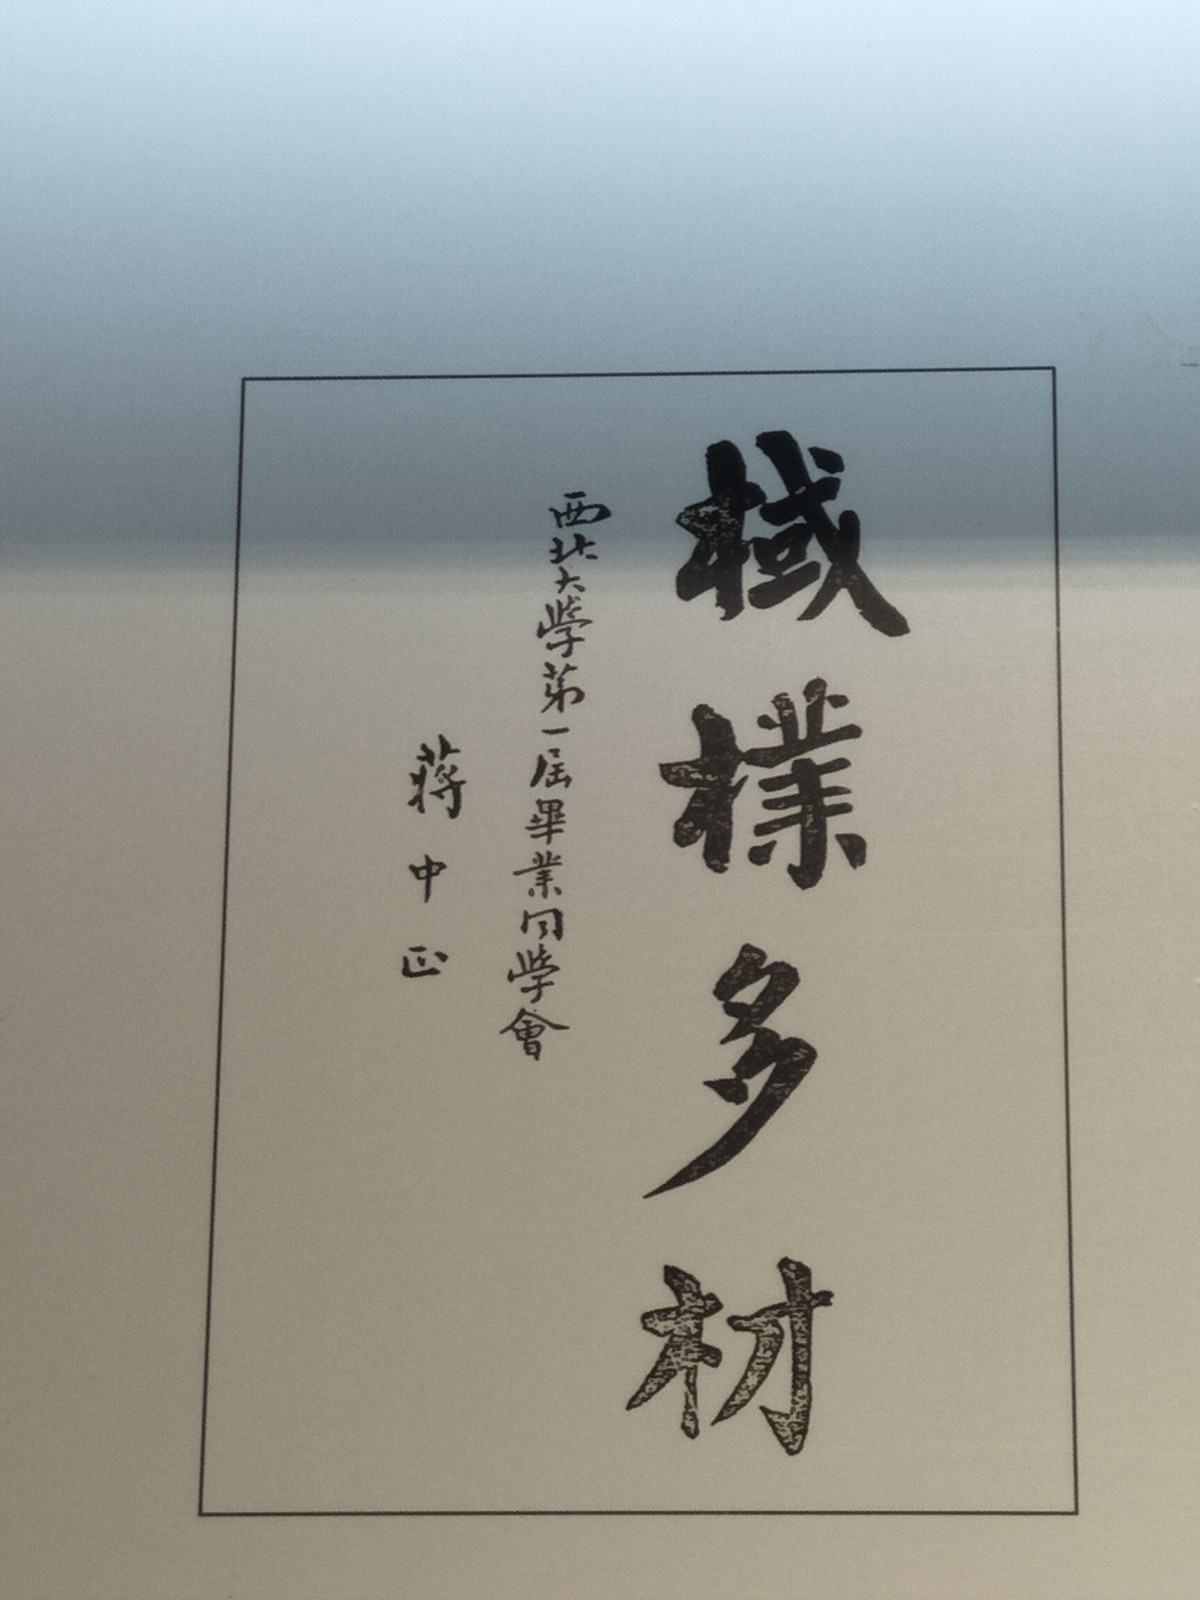 棫樸多材
西北大學第一屆畢業同學會
蔣中正